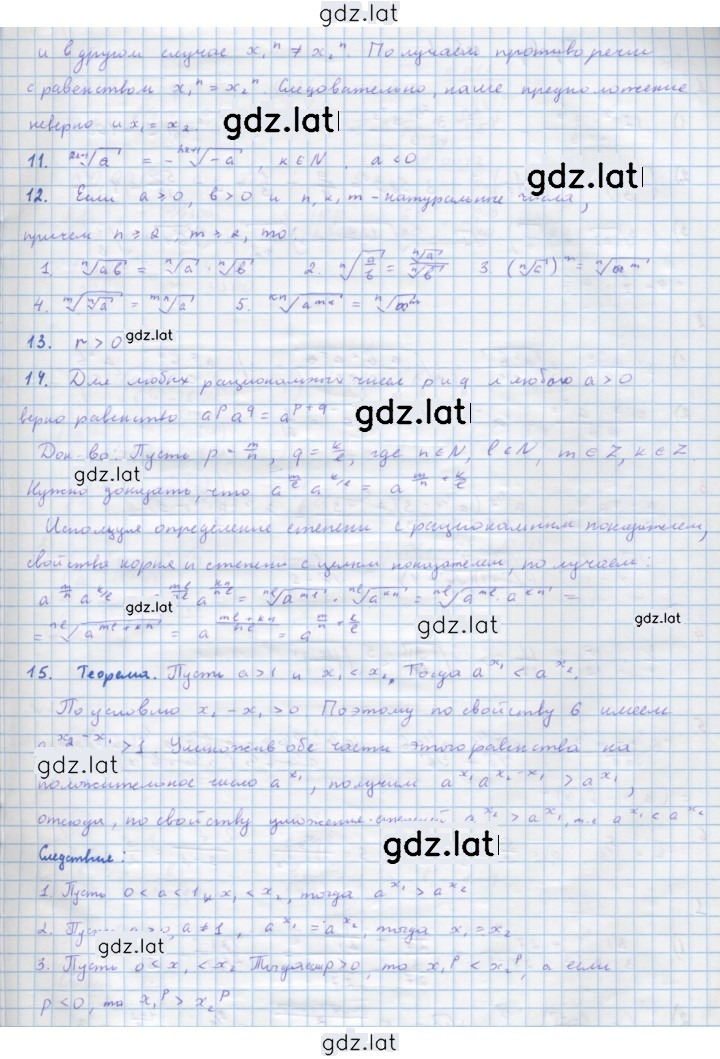 gdz.lat
и в другом случае x₁ⁿ ≠ x₂ⁿ. Получаем противоречие
с равенством x₁ⁿ = x₂ⁿ. Следовательно, наше предположение
неверно и x₁ = x₂.
gdz.lat
11. ²ᵏ⁺¹√a = - ²ᵏ⁺¹√-a , k ∈ N , a < 0
gdz.lat
12. Если a ≥ 0, b > 0 и n, k, m - натуральные числа,
причем n ≥ 2, m ≥ 2, то:
1. ⁿ√ab = ⁿ√a · ⁿ√b 2. ⁿ√(a/b) = ⁿ√a / ⁿ√b 3. (ⁿ√a)ᵐ = ⁿ√aᵐ
4. ᵐ√ⁿ√a = ᵐⁿ√a 5. ᵏⁿ√aᵐᵏ = ⁿ√aᵐ
13. r > 0 gdz.lat
14. Для любых рациональных чисел p и q и любого a > 0
верно равенство aᵖ a^q = a^(p+q)
gdz.lat
Док-во: Пусть p = m/n, q = k/l, где n ∈ N, l ∈ N, m ∈ Z, k ∈ Z.
gdz.lat
Нужно доказать, что a^(m/n) a^(k/l) = a^(m/n + k/l)
Используя определение степени с рациональным показателем,
свойства корня и степени с целым показателем, получаем:
a^(m/n) a^(k/l) = a^(ml/nl) a^(kn/nl) = ⁿˡ√aᵐˡ · ⁿˡ√aᵏⁿ = ⁿˡ√aᵐˡ · aᵏⁿ =
gdz.lat
= ⁿˡ√a^(ml+kn) = a^((ml+kn)/nl) = a^(m/n + k/l)
gdz.lat
gdz.lat
15. Теорема. Пусть a > 1 и x₁ < x₂, Тогда a^x₁ < a^x₂.
По условию x₂ - x₁ > 0 Поэтому по свойству 6 имеем
a^(x₂ - x₁) > 1. Умножив обе части этого равенства на
gdz.lat
положительное число a^x₁, получим a^x₁ a^(x₂-x₁) > a^x₁,
отсюда, по свойству умножения степеней a^x₂ > a^x₁, т.е a^x₁ < a^x₂
gdz.lat
Следствие:
1. Пусть 0 < a < 1 и x₁ < x₂, тогда a^x₁ > a^x₂
2. Пусть a > 0, a ≠ 1, a^x₁ = a^x₂, тогда x₁ = x₂
gdz.lat
3. Пусть 0 < x₁ < x₂ Тогда если p > 0, то x₁ᵖ < x₂ᵖ, а если
p < 0, то x₁ᵖ > x₂ᵖ
gdz.lat